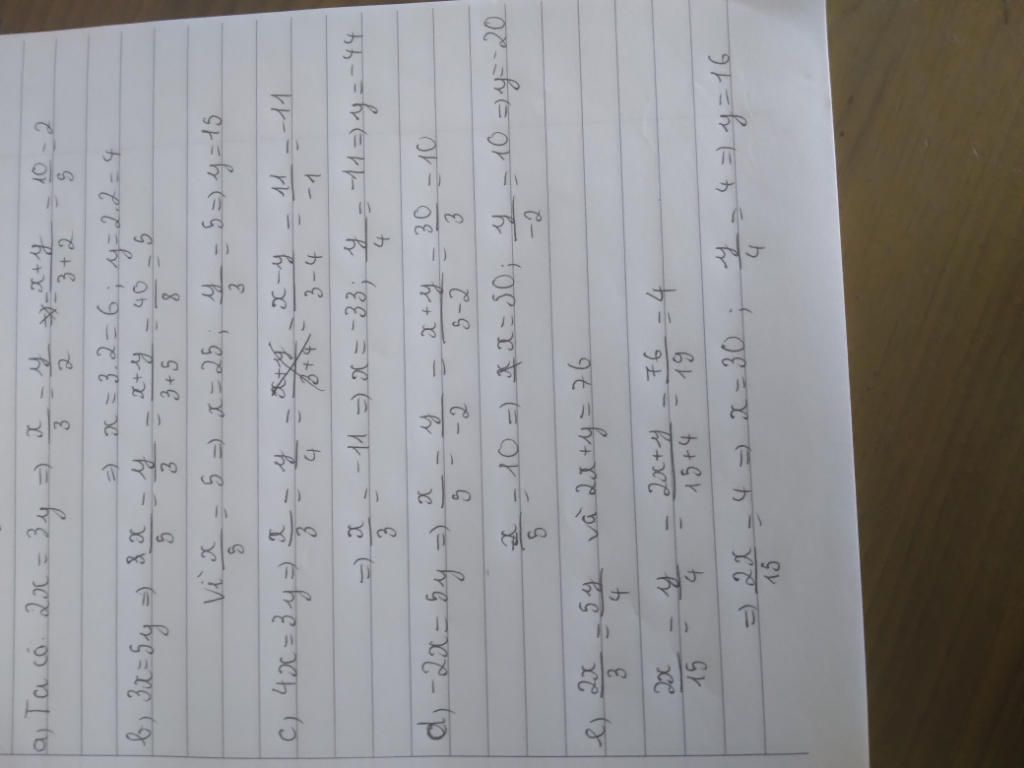 a) Ta có: 2x = 3y => x/3 = y/2 = x+y/3+2 = 10/5 = 2
=> x = 3.2 = 6; y = 2.2 = 4
b) 3x = 5y => x/5 = y/3 = x+y/3+5 = 40/8 = 5
Vì x/5 = 5 => x = 25; y/3 = 5 => y = 15
c) 4x = 3y => x/3 = y/4 = x-y/3-4 = 11/-1 = -11
=> x/3 = -11 => x = -33; y/4 = -11 => y = -44
d) -2x = 5y => x/5 = y/-2 = x+y/5-2 = 30/3 = 10
x/5 = 10 => x = 50; y/-2 = 10 => y = -20
e) 2x/3 = 5y/4 và 2x+y = 76
2x/15 = y/4 = 2x+y/15+4 = 76/19 = 4
=> 2x/15 = 4 => x = 30; y/4 = 4 => y = 16